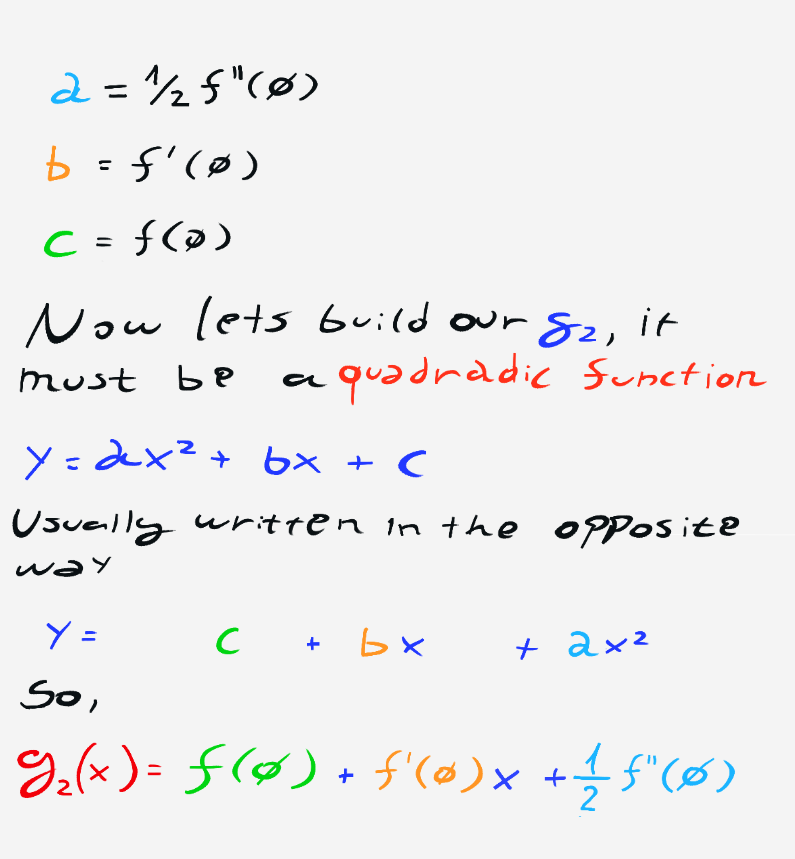 a = 1/2 f"(ø)
b = f'(ø)
c = f(ø)
Now lets build our g₂, it
must be a quadradic function
y = ax² + bx + c
Usually written in the opposite
way
y = c + bx + ax²
So,
g₂(x) = f(ø) + f'(ø)x + 1/2 f"(ø)